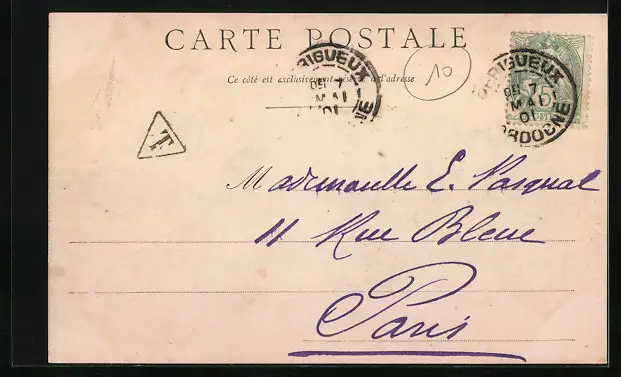 CARTE POSTALE
Ce côté est exclusivement réservé à l'adresse
PERIGUEUX
7
MAI
01
10
PERIGUEUX
7
MAI
01
DORDOGNE
5
T
Mademoiselle E. Pasqual
11 Rue Bleue
Paris